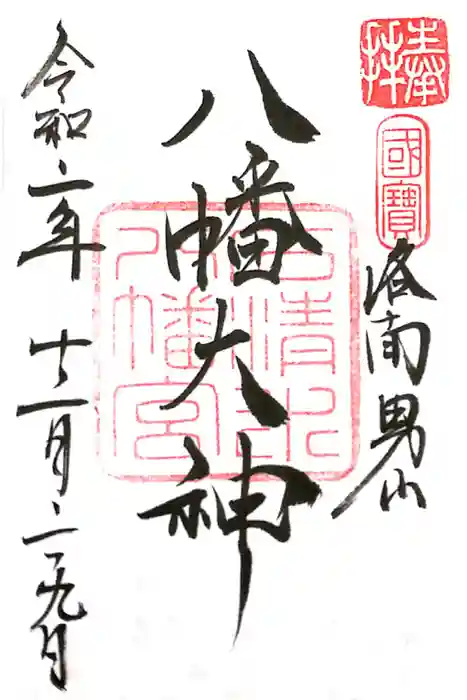 奉拝
國寶
洛南男山
八幡大神
石清水
八幡宮
令和二年十一月二十九日